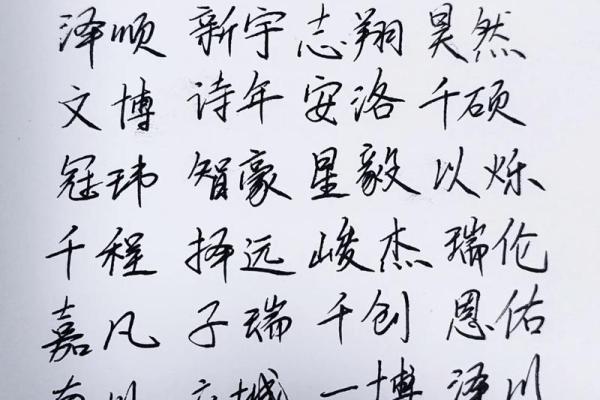 泽顺 新宇 志翔 昊然
文博 诗年 安洛 千硕
冠玮 智豪 星毅 以烁
千程 择远 峻杰 瑞伦
嘉凡 子瑞 千创 恩佑
一博 泽川